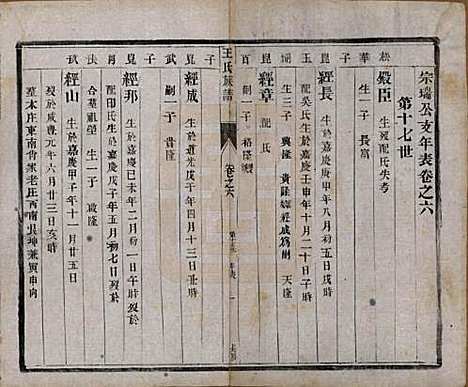 宗瑞公支年表卷之六
第十七世
松 華 子
殿臣 生歿配氏失考
生一子 經長
崑 玥 子
經長 生於嘉慶甲子年八月初五日戌時
配吳氏生於嘉慶壬申年十月二十日子時
生三子 興隆 貴隆嗣經成為嗣 天隆
崑 百 子
經章 配氏
嗣一子
王氏族譜
卷之六
年表
崑 武 子
經成 生於道光戊子年四月十三日丑時
嗣一子 貴隆
崑 子
經邦 生於嘉慶己未年二月初一日午時歿於
配印氏生於嘉慶戊子年五月初七日歿於
合墓祖塋 生一子 啟隆
法 武 子
經山 生於嘉慶甲子年十一月廿五日
歿於咸豐元年六月廿三日亥時
塟本庄東南曾家老庄西南艮坤兼寅申向